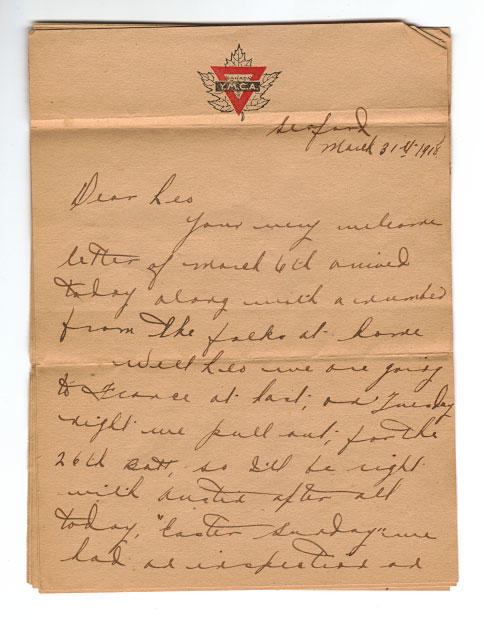 CANADIAN
Y.M.C.A.
Seaford
March 31st 1918
Dear Leo
Your very welcome
letter of March 6th arrived
today along with a number
from the folks at home
Well Leo we are going
to France at last, on Tuesday
night we pull out, for the
26th Batt, so I'll be right
with Austin after all
today, "Easter Sunday" we
had an inspection an